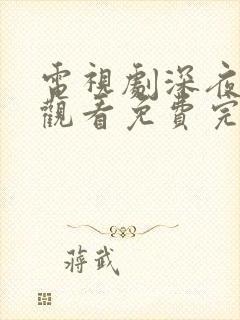 電視劇深夜
觀看免費完
蔣武